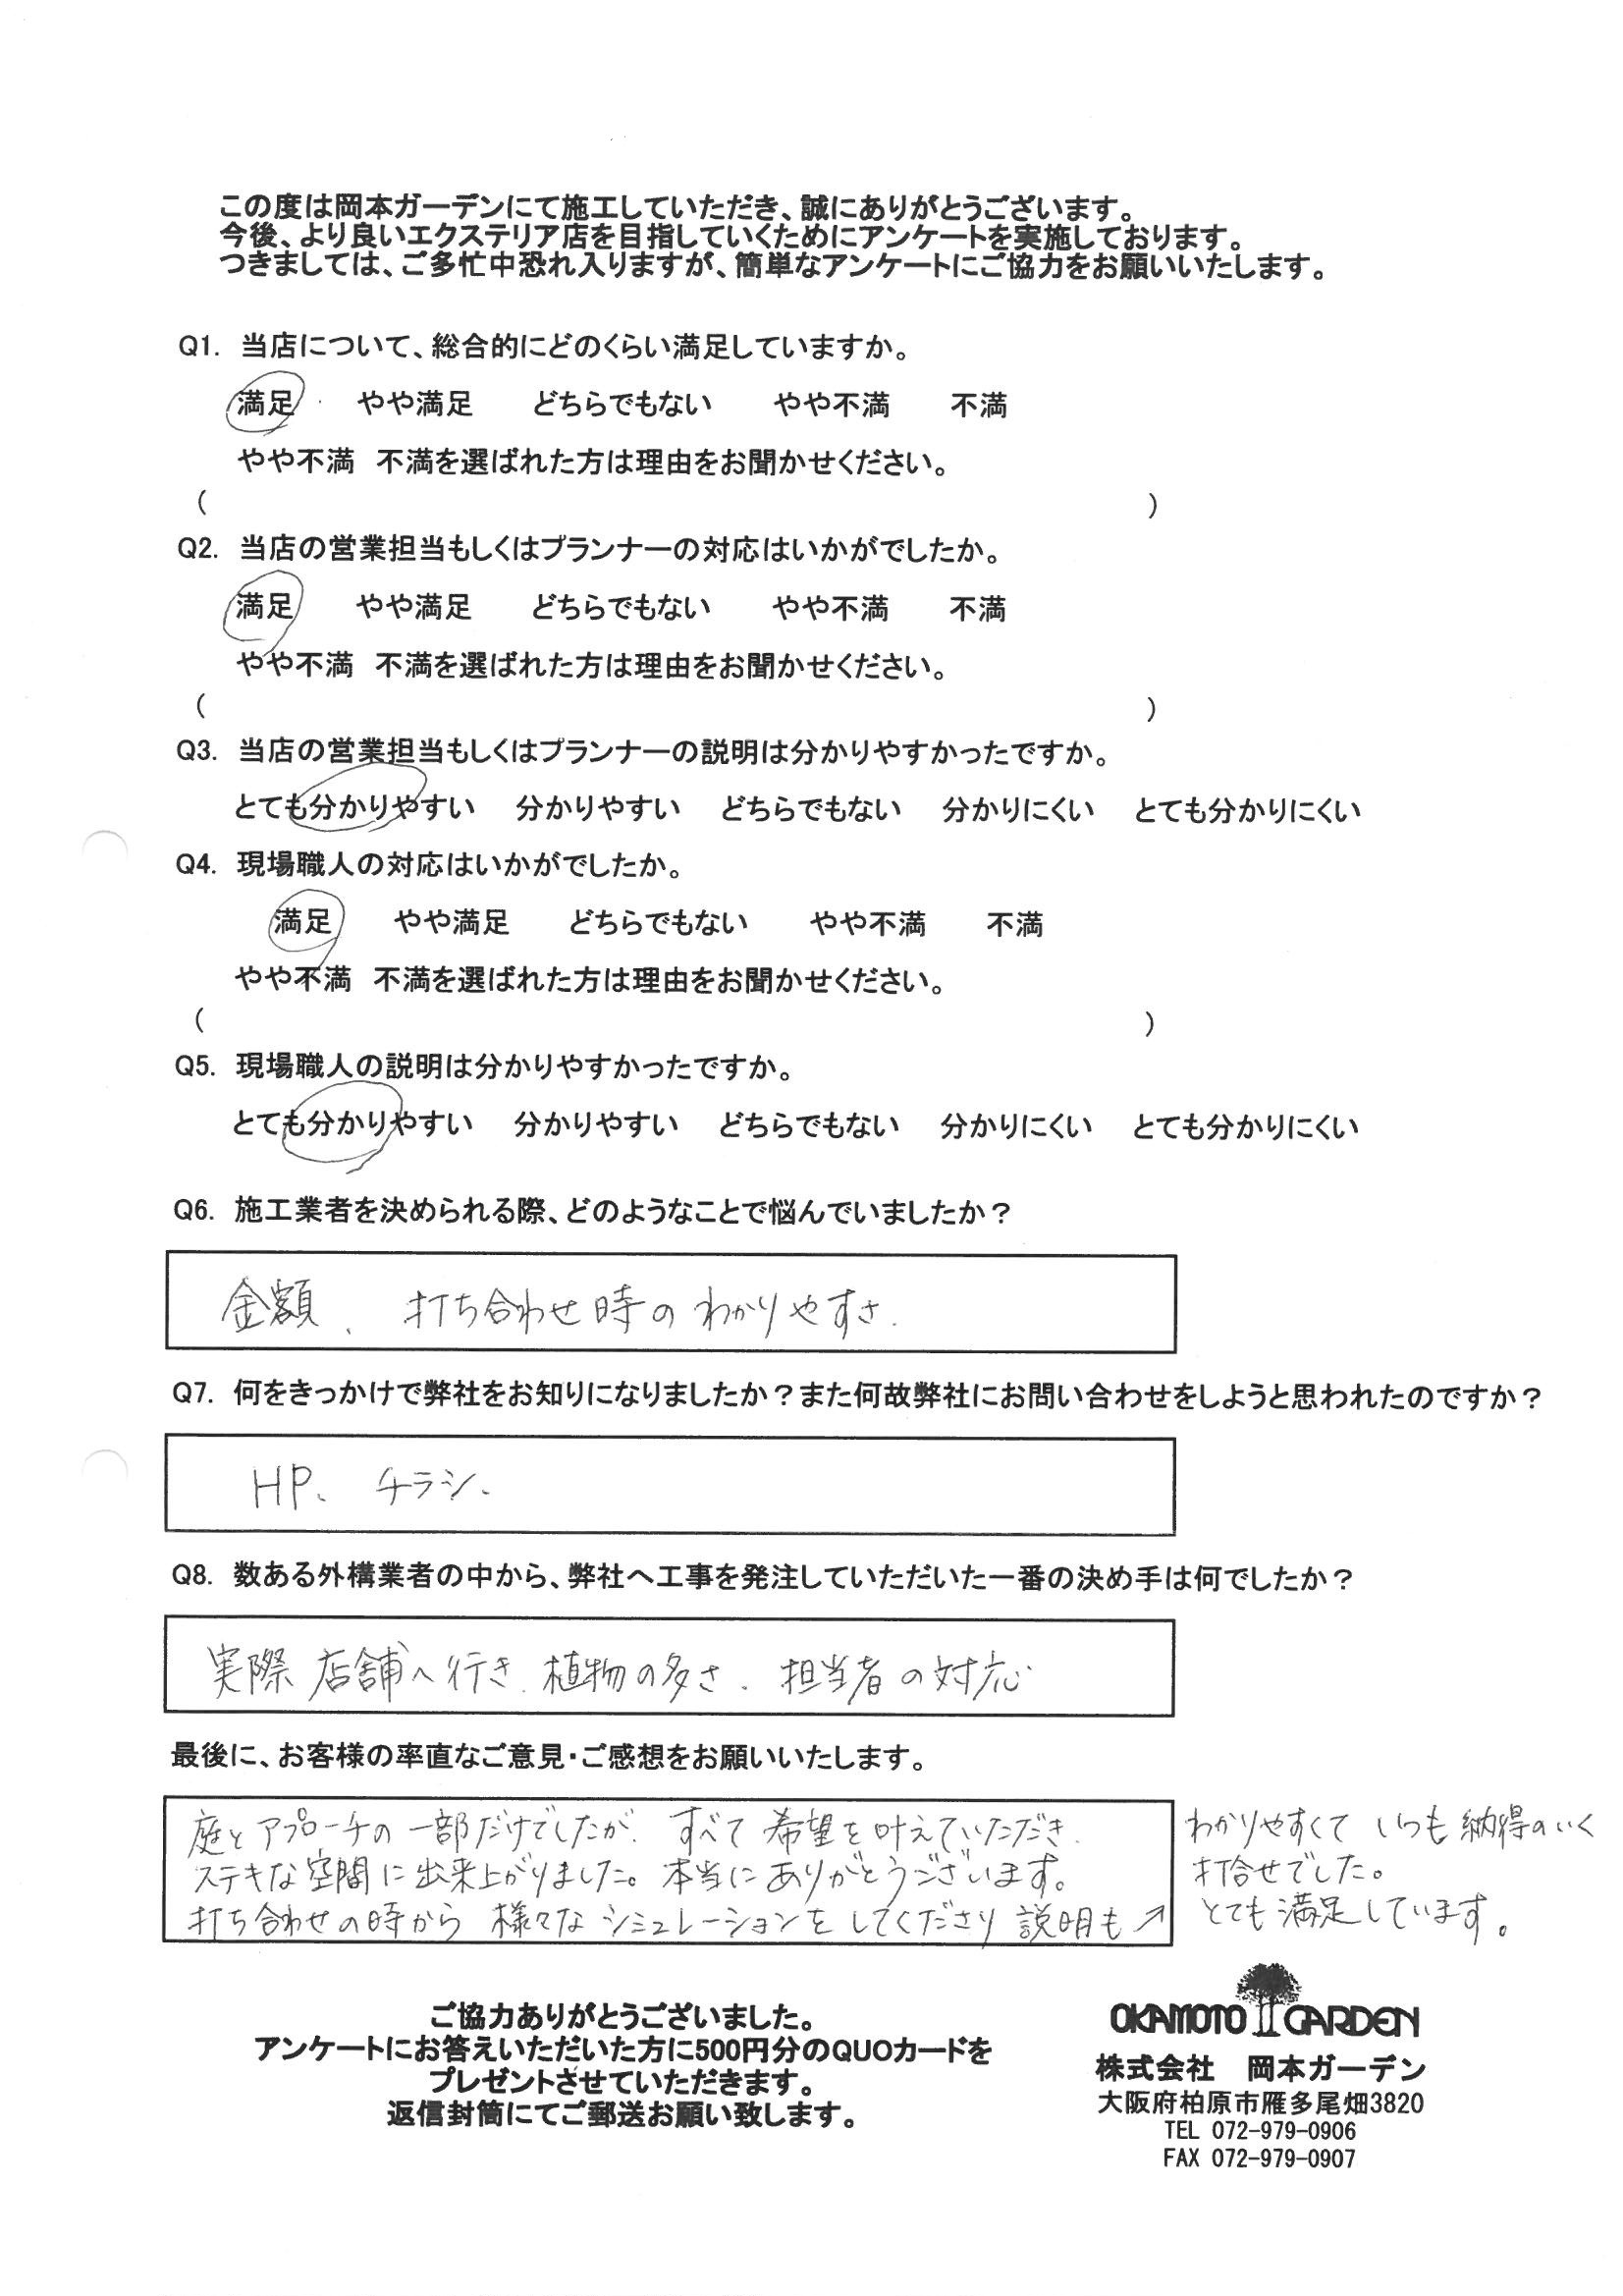 この度は岡本ガーデンにて施工していただき、誠にありがとうございます。
今後、より良いエクステリア店を目指していくためにアンケートを実施しております。
つきましては、ご多忙中恐れ入りますが、簡単なアンケートにご協力をお願いいたします。
Q1. 当店について、総合的にどのくらい満足していますか。
満足 やや満足 どちらでもない やや不満 不満
やや不満 不満を選ばれた方は理由をお聞かせください。
( )
Q2. 当店の営業担当もしくはプランナーの対応はいかがでしたか。
満足 やや満足 どちらでもない やや不満 不満
やや不満 不満を選ばれた方は理由をお聞かせください。
( )
Q3. 当店の営業担当もしくはプランナーの説明は分かりやすかったですか。
とても分かりやすい 分かりやすい どちらでもない 分かりにくい とても分かりにくい
Q4. 現場職人の対応はいかがでしたか。
満足 やや満足 どちらでもない やや不満 不満
やや不満 不満を選ばれた方は理由をお聞かせください。
( )
Q5. 現場職人の説明は分かりやすかったですか。
とても分かりやすい 分かりやすい どちらでもない 分かりにくい とても分かりにくい
Q6. 施工業者を決められる際、どのようなことで悩んでいましたか？
金額、打ち合わせ時のわかりやすさ.
Q7. 何をきっかけで弊社をお知りになりましたか？また何故弊社にお問い合わせをしようと思われたのですか？
HP、チラシ、
Q8. 数ある外構業者の中から、弊社へ工事を発注していただいた一番の決め手は何でしたか？
実際店舗へ行き、植物の多さ、担当者の対応
最後に、お客様の率直なご意見・ご感想をお願いいたします。
庭とアプローチの一部だけでしたが、すべて希望を叶えていただき、
ステキな空間に出来上がりました。本当にありがとうございます。
打ち合わせの時から様々なシミュレーションをしてくださり説明も↗
わかりやすくていつも納得のいく
打合せでした。
とても満足しています。
ご協力ありがとうございました。
アンケートにお答えいただいた方に500円分のQUOカードを
プレゼントさせていただきます。
返信封筒にてご郵送お願い致します。
OKAMOTO GARDEN
株式会社 岡本ガーデン
大阪府柏原市雁多尾畑3820
TEL 072-979-0906
FAX 072-979-0907